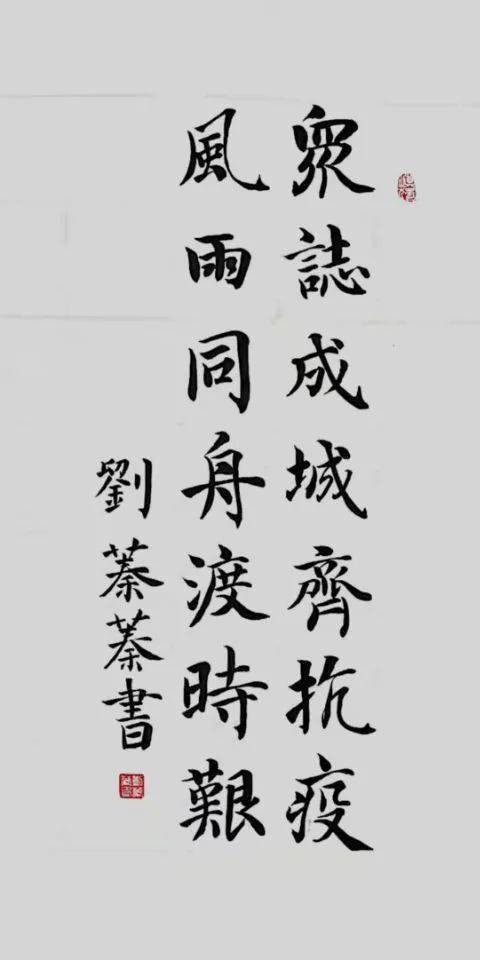 眾誌成城齊抗疫
風雨同舟渡時艱
劉蓁蓁書